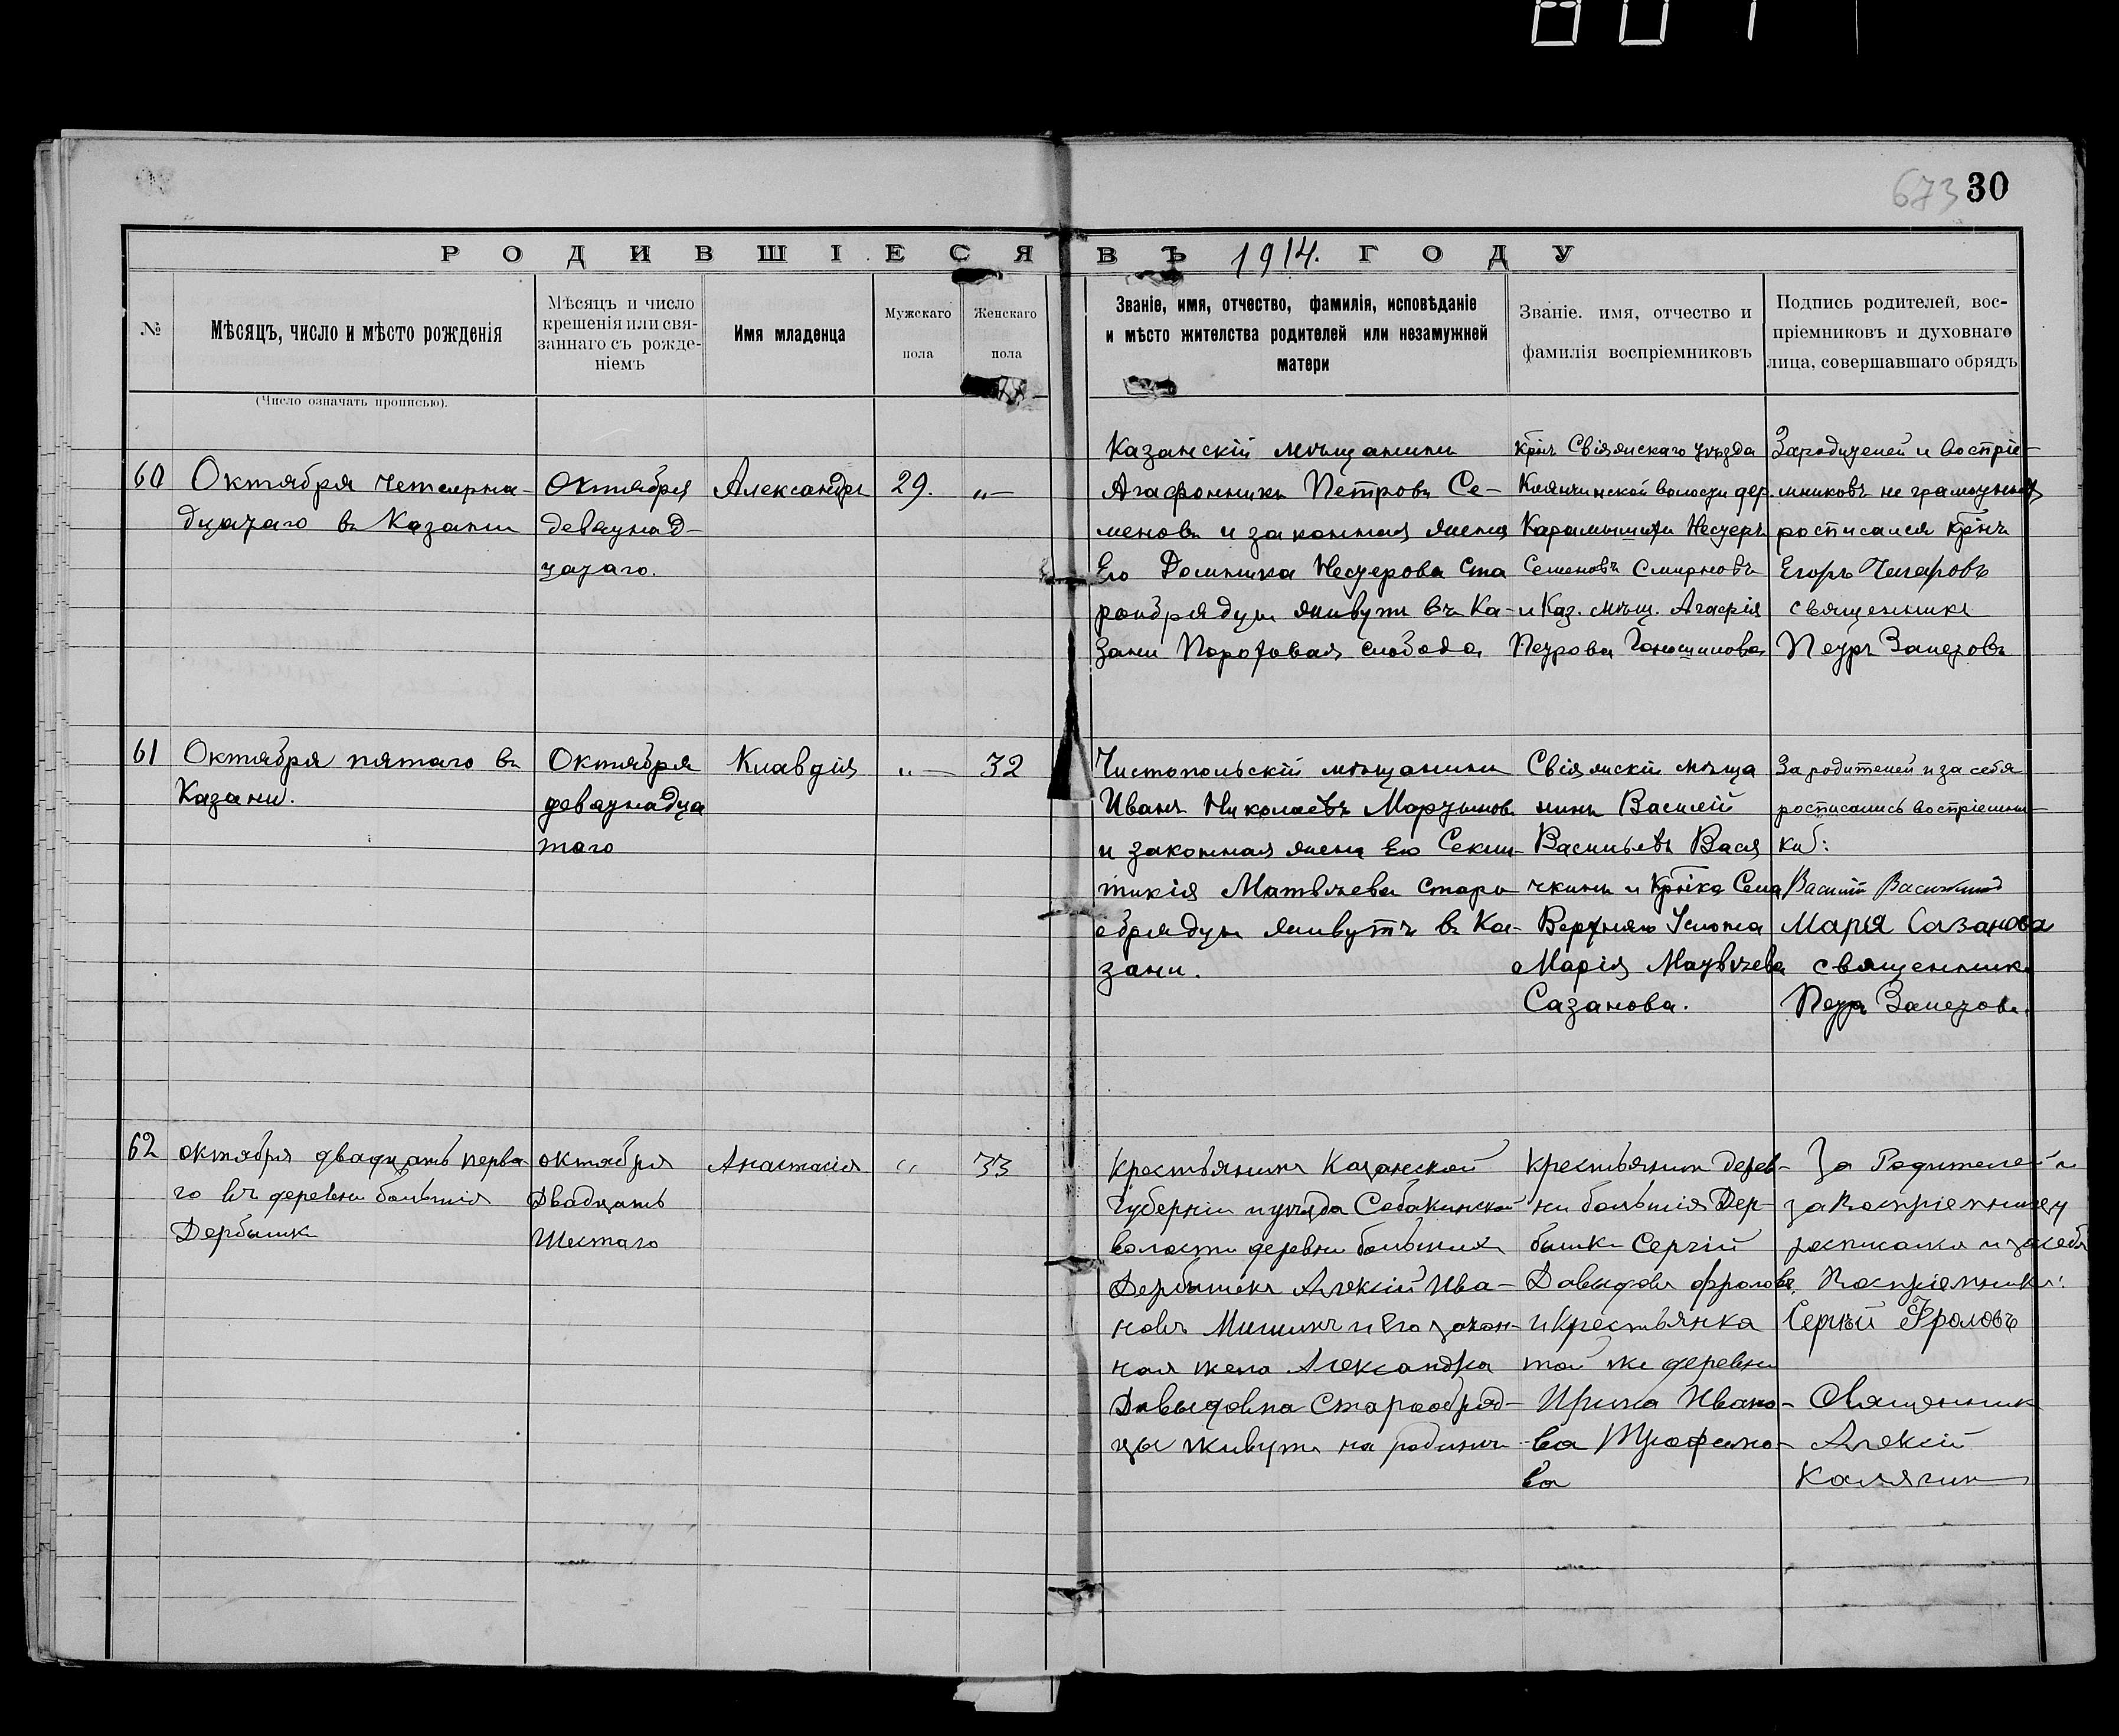 673 30
РОДИВШІЕСЯ ВЪ 1914. ГОДУ
№
Мѣсяцъ, число и мѣсто рожденія
(Число означать прописью).
Мѣсяцъ и число
крещенія или свя-
заннаго съ рожде-
ніемъ
Имя младенца
Мужскаго
пола
Женскаго
пола
Званіе, имя, отчество, фамилія, исповѣданіе
и мѣсто жителства родителей или незамужней
матери
Званіе. имя, отчество и
фамилія воспріемниковъ
Подпись родителей, вос-
пріемниковъ и духовнаго
лица, совершавшаго обрядъ
60
Октября четырна-
дцатаго въ Казани
Октября
девятнад-
цатаго.
Александръ
29.
"—
Казанскій мѣщанинъ
Агафонникъ Петровъ Се-
меновъ и законная жена
Его Домника Нестерова Ста
рообрядцы живутъ въ Ка-
зани Пороховая слобода
Крнъ Свіяжскаго уѣзда
волости дер.
Нестеръ
Семеновъ Смирновъ
и Каз. мѣщ. Агафія
Петрова
За родителей и воспріе-
мниковъ не грамотныхъ
росписался Крнъ
Егоръ
священникъ
Петръ Залетовъ
61
Октября пятаго въ
Казани.
Октября
девятнадца
таго
Клавдія
"—
32
Чистопольскій мѣщанинъ
Иванъ Николаевъ Мартынов
и законная жена Его Секли-
тикія Матвѣева Старо
обрядцы живутъ въ Ка-
зани.
Свіяжскій мѣща
нинъ Василій
Васильевъ Вася
чкинъ и Крнка Села
Верхняго Услона
Марія Матвѣева
Сазанова.
За родителей и за себя
росписались воспріемни-
ки:
Василій
Марія Сазанова
священникъ
Петръ Залетовъ.
62
октября двадцать перва
го въ деревни большія
Дербышк
октября
Двадцать
Шестаго
Анастасія
"
33
крестьянинъ Казанской
Губерніи и уѣзда Собакинской
волости деревни большихъ
Дербышекъ Алексій Ива-
новъ Мишинъ и Его закон-
ная жена Александра
Давыдовна Старообряд-
цы живутъ на родинѣ
крестьянин дерев-
ни большія Дер-
бышк Сергій
Давыдовъ Фроловъ,
и Крестьянка
той же деревни
Ирина Ивано-
ва Трофимо-
ва
За Родителей и
за Воспріемницу
росписался и за себя
Воспріемникъ:
Сергѣй Фроловъ
Священник
Алексій
Калягин